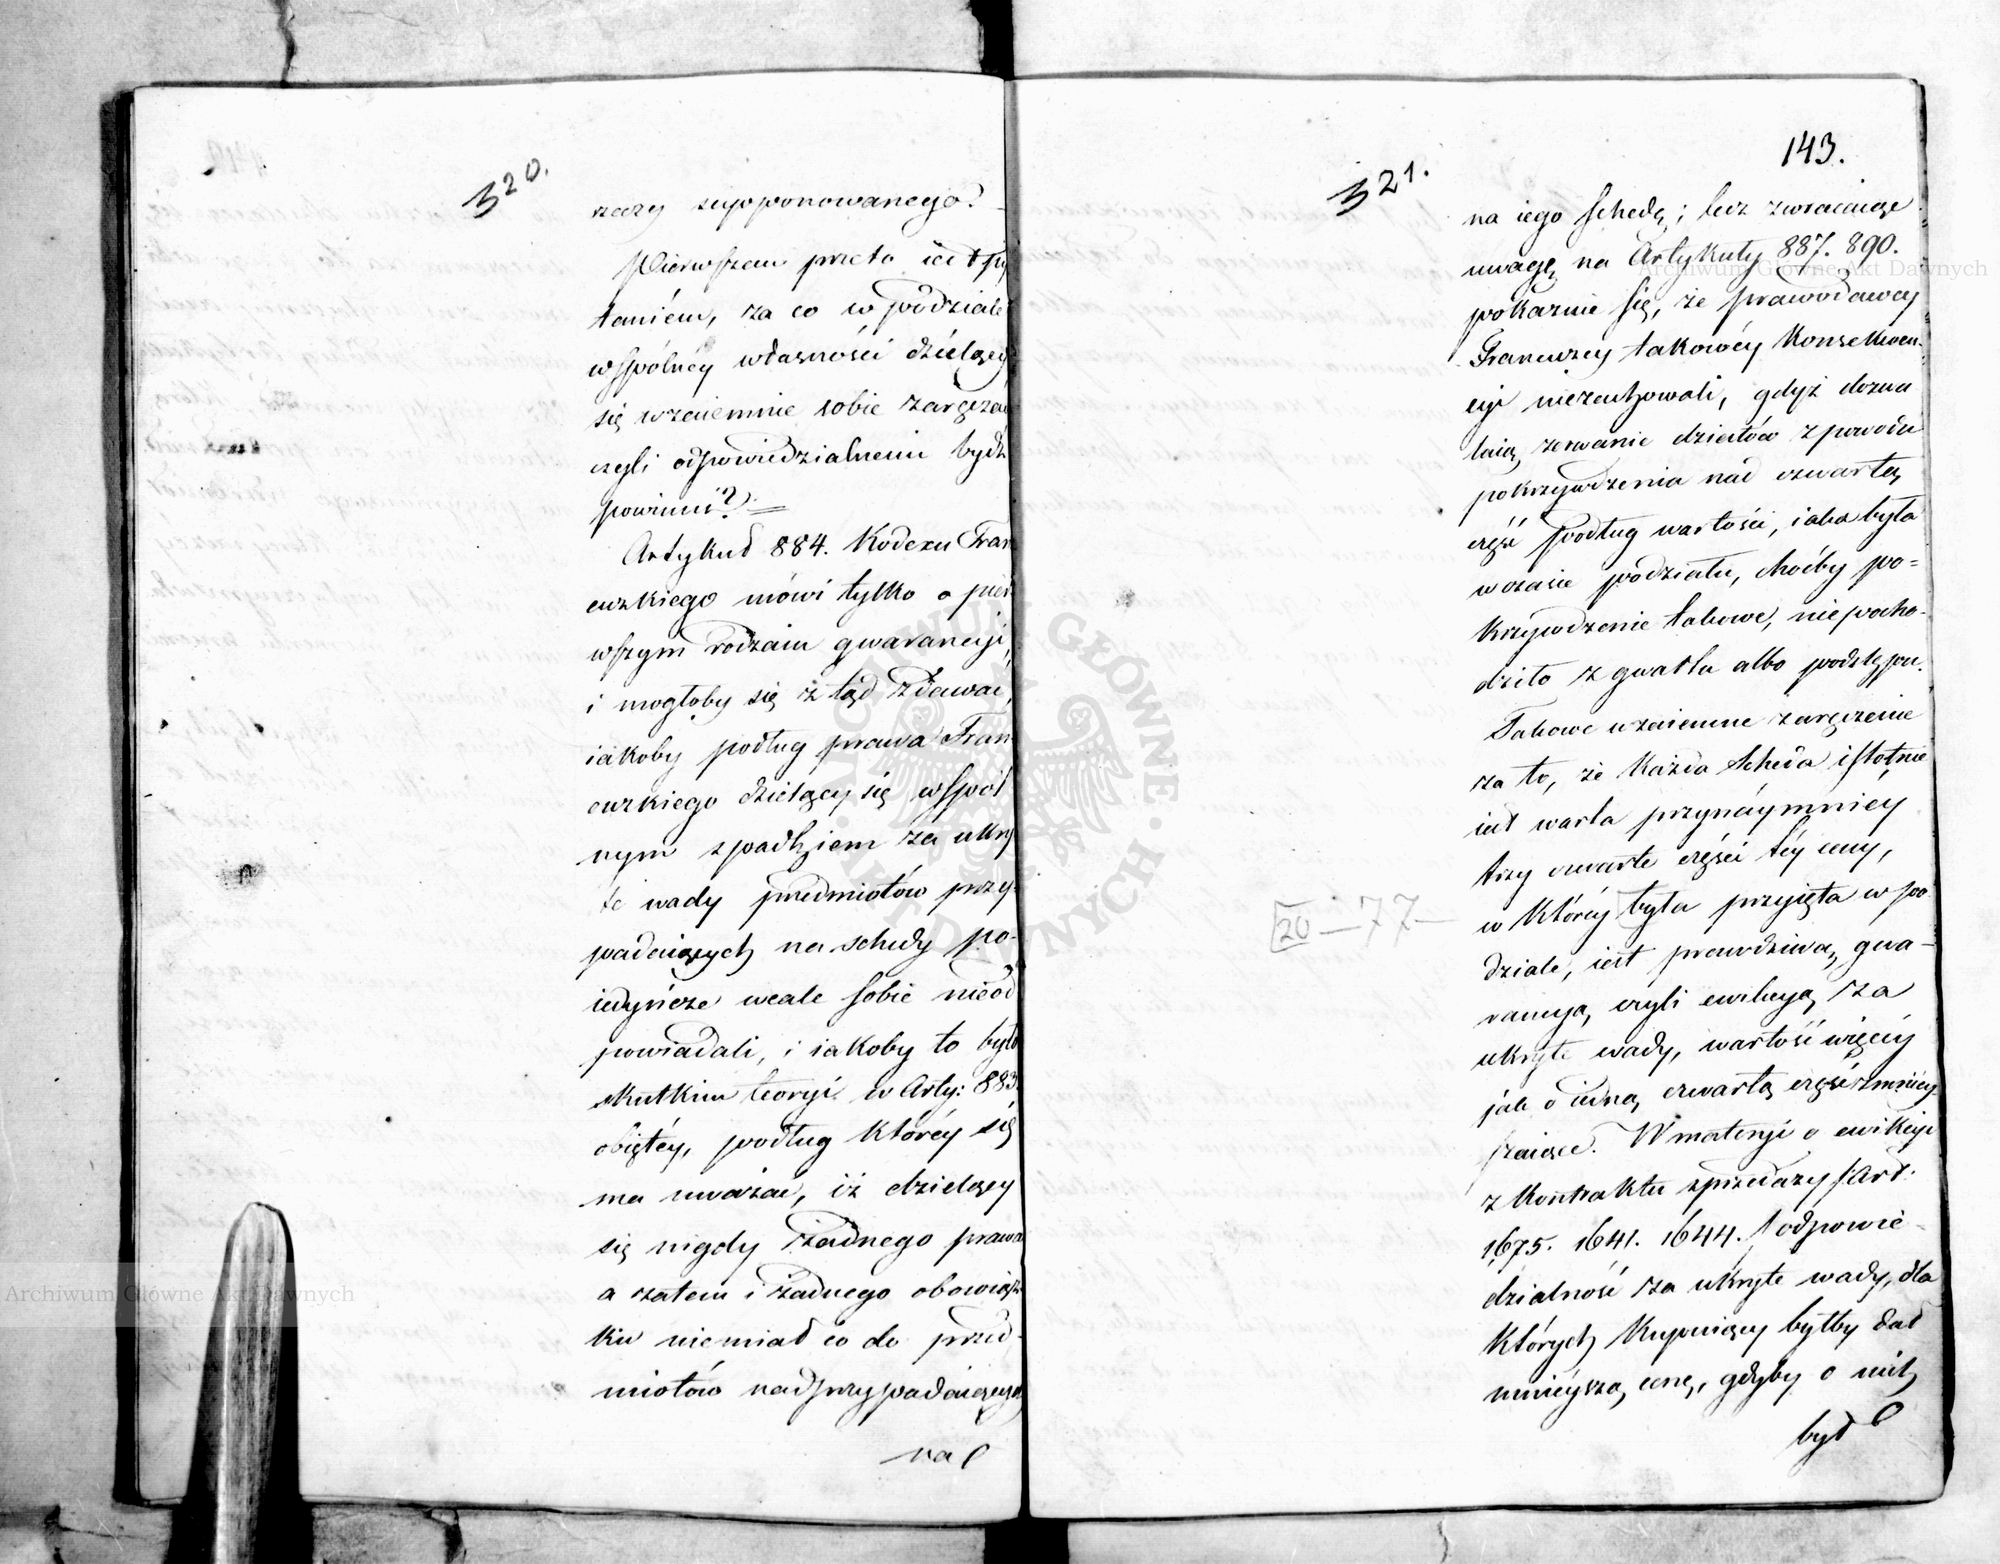 320.
rzezy supponowanego?
Pierwszem przeto iest py
taniém, za co w podziale
wspólnéy własności dzielący
się wzaiemnie sobie zaręczać
czyli odpowiedzialnemi bydź
powinni?
Artykuł 884. Kodexu Fran
cuzkiego mówi tylko o pier
wszym rodzaiu gwarancyi,
i mogłoby się z tąd zdawać,
iakoby podług prawa Fran
cuzkiego dzielący się wspól
nym spadkiem za ukry
te wady przedmiotów przy-
padaiących na schedy po-
iedyńcze wcale sobie nieod
powiadali, i iakoby to było
skutkiem teoryi w Arty: 883.
obiętéy, podług któréy się
ma uważać, iż dzielący
się nigdy żadnego prawa
a zatem i żadnego obowiąz
ku niemiał co do przed-
miotów nadprzypadaiących
na
143.
321.
na iego schedę; lecz zwracaiąc
uwagę na Artykuły 887. 890.
pokazuie się, że prawodawcy
Francuzcy takowéy konsekwen-
cyi niezachowali, gdyż dozwa
laią zerwanie działów z powodu
pokrzywdzenia nad czwartą
część podług wartości, iaka była
w czasie podziału, choćby po=
krzywdzenie takowe, niepocho-
dziło z gwałtu albo podstępu.
Takowe wzaiemne zaręczenie
za to, że każda scheda istotnie
iest warta przynáymniey
trzy czwarte części téy ceny,
w któréy była przyięta w po
dziale, iest prawdziwą gwa-
rancyą czyli ewikcyą za
ukryte wady, wartość więcéy
jak o iedną czwartą część zmniey-
szaiące. W materyi o ewikcyi
z kontraktu sprzedaży /:Art:
1675. 1641. 1644. odpowie-
dzialność za ukryte wady, dla
których kupuiący byłby dał
mnieyszą cenę, gdyby o nich
był
20 — 77 —
Archiwum Główne Akt Dawnych
Archiwum Główne Akt Dawnych
ARCHIWUM GŁÓWNE AKT DAWNYCH